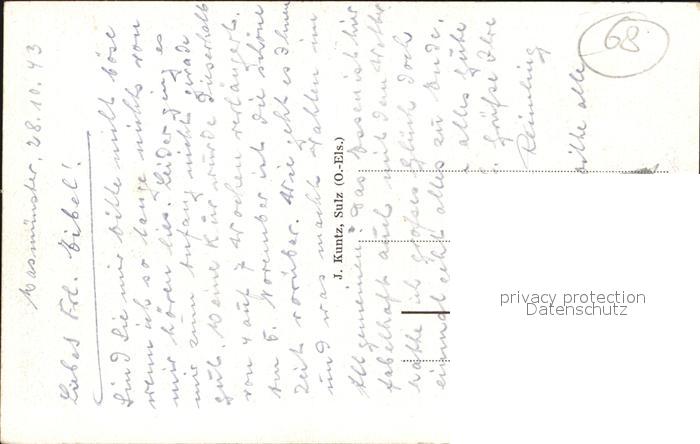 Masmünster, 28.10.43
Liebes Frl. Bibel!
Sind Sie mir bitte nicht böse
wenn ich so lange nichts von
mir hören lies. Leider ging es
mir zum Anfang nicht gerade
gut. Meine Kur wurde dieserhalb
von 4 auf 7 Wochen verlängert.
Am 5. November ist die schöne
Zeit vorüber. Wie geht es Ihnen
und was macht
Allgemein. Das Essen ist hier
fabelhaft auch mit dem Wetter
hatte ich großes Glück doch
einmal geht alles zu Ende.
alles Gute
Grüße Ihre
bitte alle
68
J. Kuntz, Sulz (O.-Els.)
privacy protection
Datenschutz